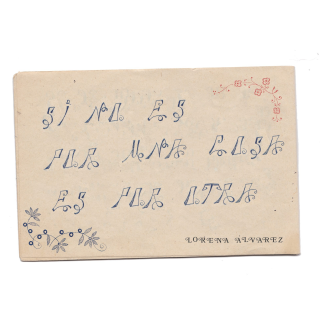 SI NO ES
POR UNA COSA
ES POR OTRA
LORENA ALVAREZ